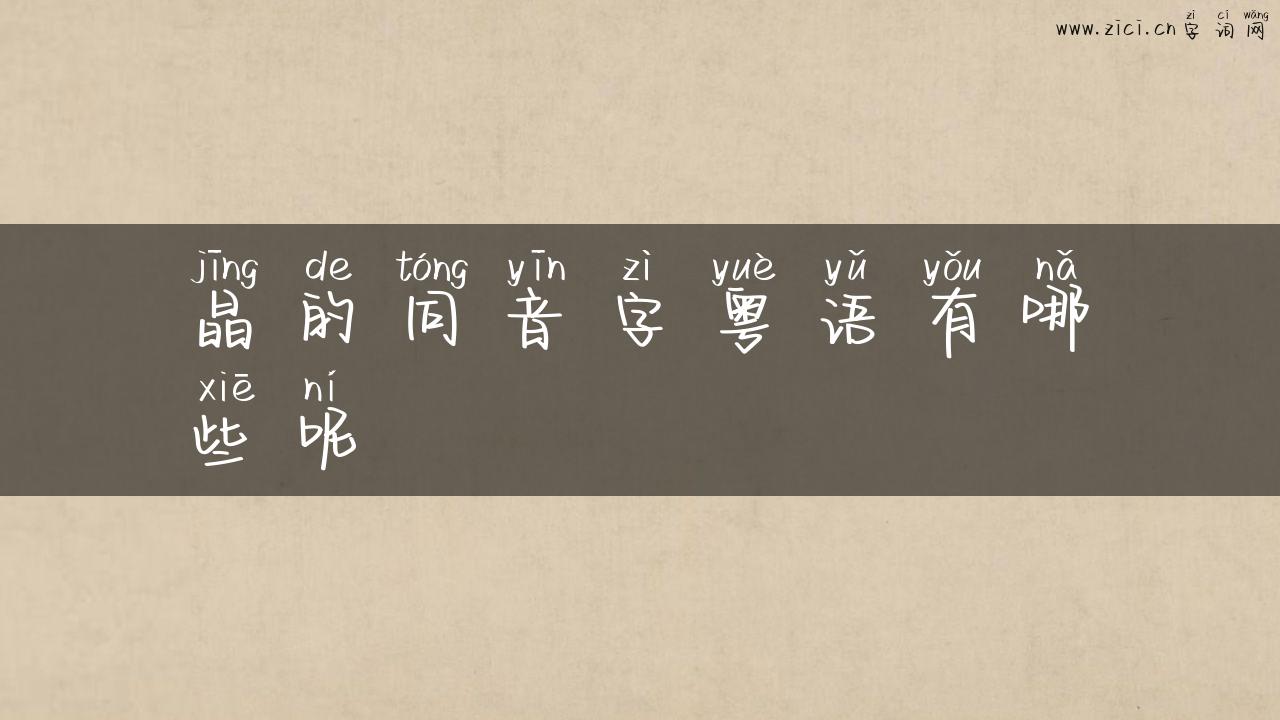 zì cí wǎng
www.zici.cn 字 词 网
jīng de tóng yīn zì yuè yǔ yǒu nǎ
晶 的 同 音 字 粤 语 有 哪
xiē ní
些 呢